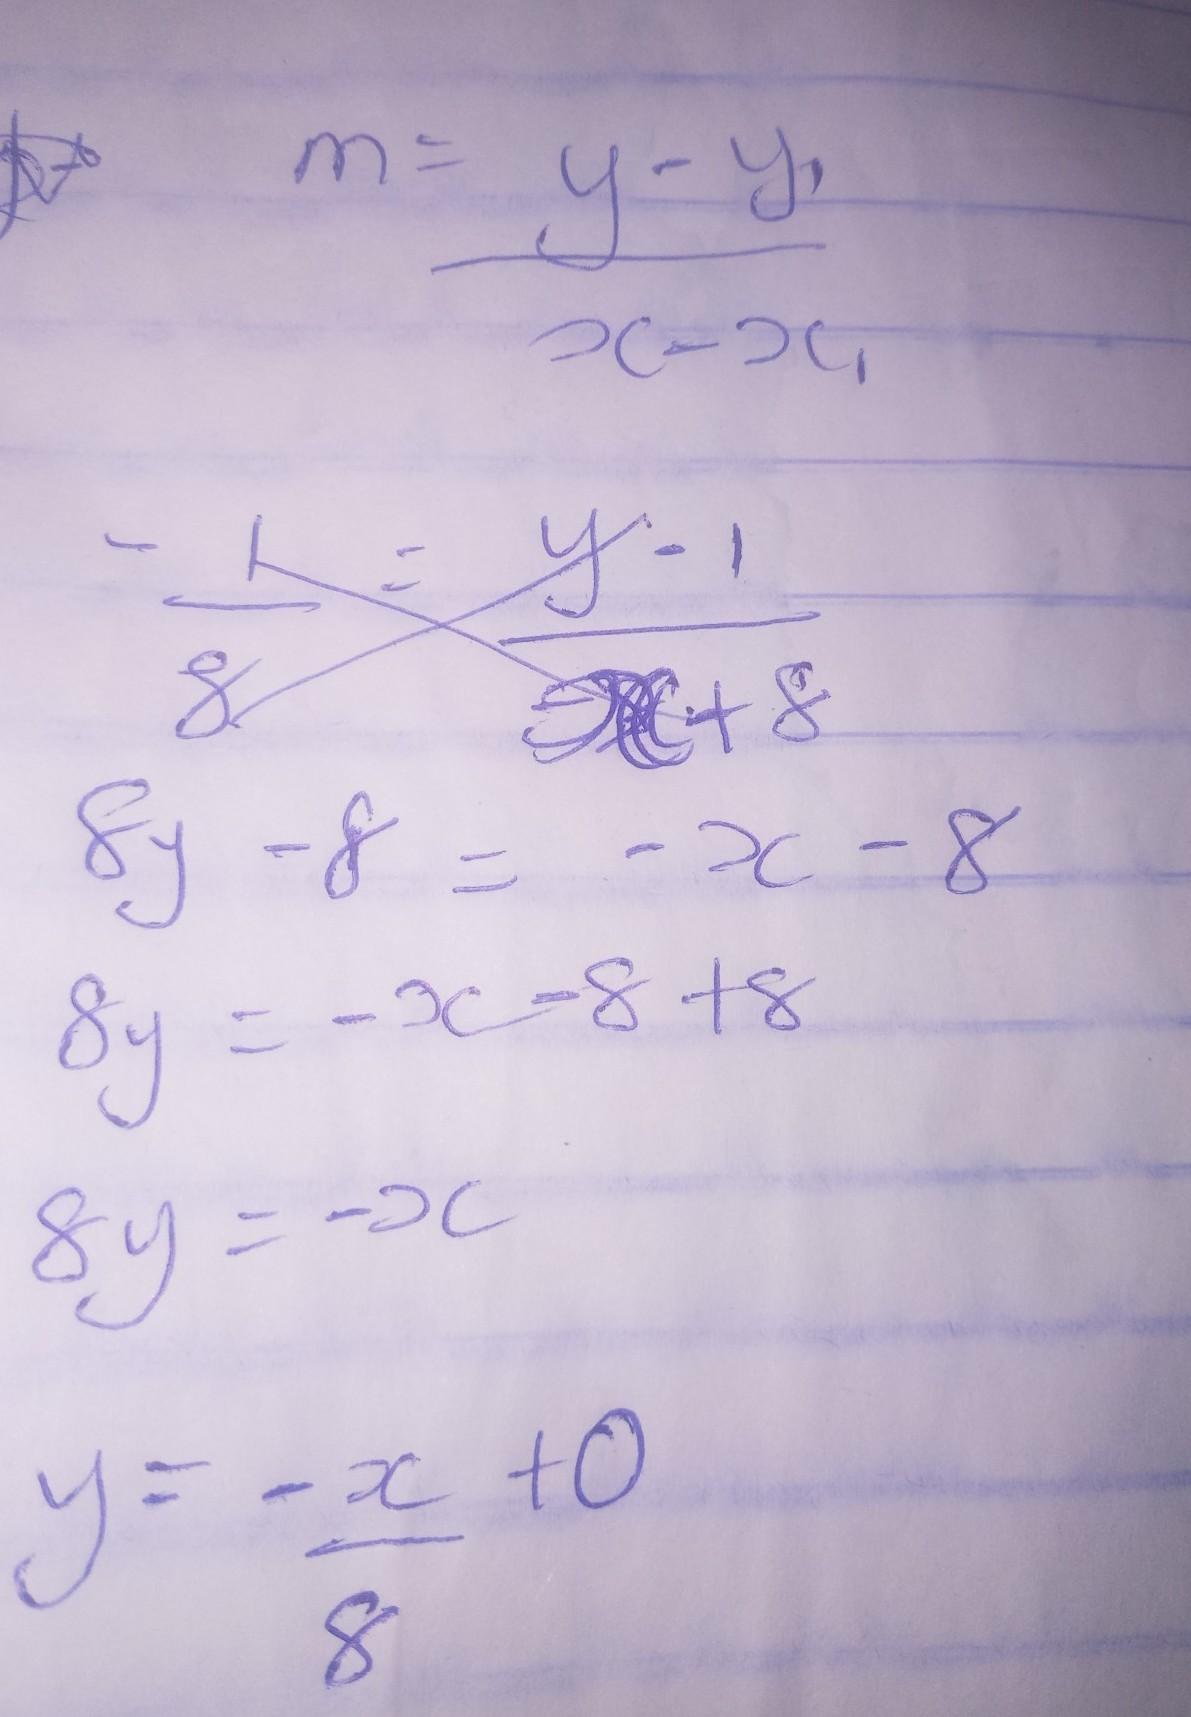 m = y - y₁
x - x₁
- 1 = y - 1
8 x + 8
8y - 8 = - x - 8
8y = - x - 8 + 8
8y = - x
y = - x + 0
8